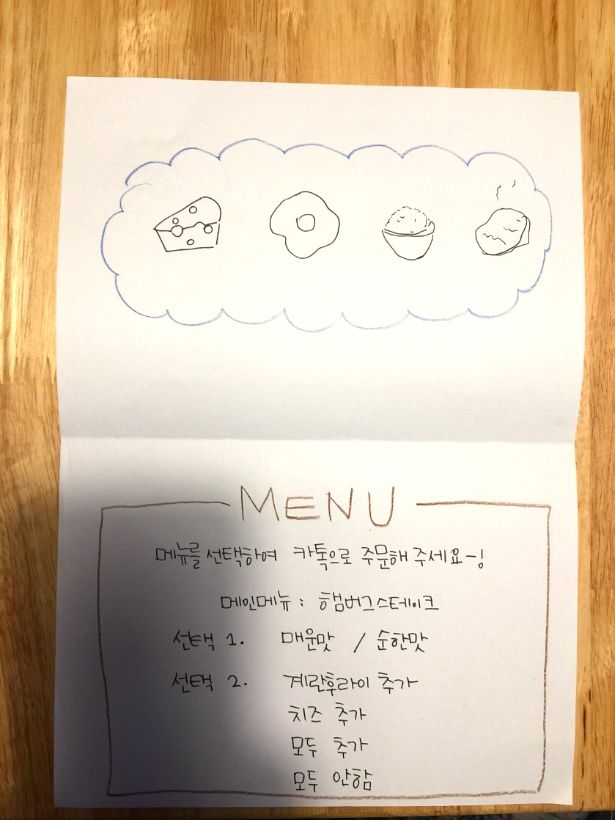 MENU
메뉴를 선택하여 카톡으로 주문해 주세요~!
메인메뉴 : 햄버그스테이크
선택 1. 매운맛 / 순한맛
선택 2. 계란후라이 추가
치즈 추가
모두 추가
모두 안함